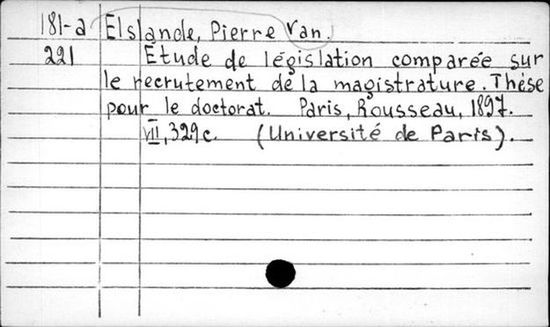 181-a Elslande, Pierre Van.
221 Etude de législation comparée sur
le recrutement de la magistrature. Thèse
pour le doctorat. Paris, Rousseau, 1897.
VII, 329c. (Université de Paris).